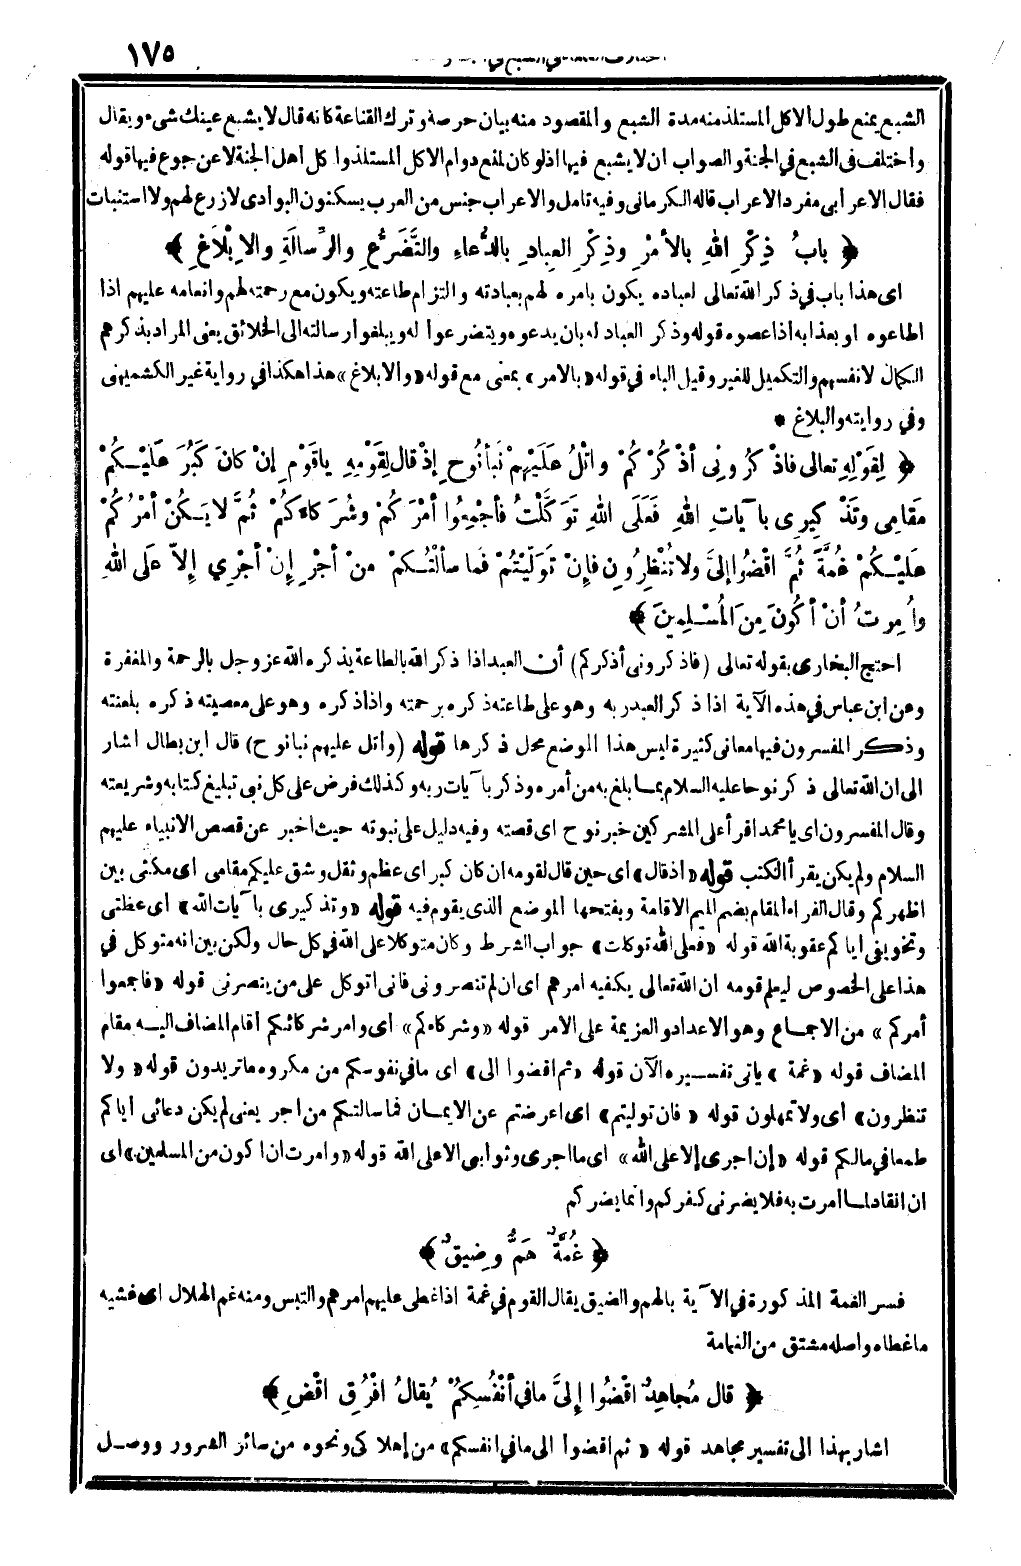 ١٧٥
الشبع يمنع طول الاكل المستلذ منه مدة الشبع والمقصود منه بيان حرصه وترك القناعة كانه قال لا يشبع عينك شيء ويقال
واختلف فى الشبع في الجنة والصواب ان لا يشبع فيها اذ لو كان لمنع دوام الاكل المستلذوا كل اهل الجنة لا عن جوع فيها قوله
فقال الاعرابى مفرد الاعراب قاله الكرمانى وفيه تامل والاعراب جنس من العرب يسكنون البوادى لا زرع لهم ولا استنبات
﴿ بابُ ذِكْرِ اللهِ بالأمْرِ وذِكْرِ العِبادِ بالدُّعاءِ والتَّضَرُّعِ والرِّسالَةِ والابْلاَغِ ﴾
اى هذا باب في ذكر الله تعالى لعباده يكون بامره لهم بعبادته والتزام طاعته ويكون مع رحمته لهم وانعامه عليهم اذا
اطاعوه او بعذابه اذا عصوه قوله وذكر العباد له بان يدعوه ويتضرعوا له ويبلغوا رسالته الى الخلائق يعنى المراد بذكرهم
الكمال لانفسهم والتكميل للغير وقيل الباء في قوله «بالامر» بمعنى مع قوله «والابلاغ» هذا هكذا في رواية غير الكشميهنى
وفي روايته والبلاغ *
﴿ لِقَوْلِهِ تعالى فاذْكُرُونِى أذْكُرْكُمْ واتْلُ عَلَيْهِمْ نَبأَ نُوحٍ إذْ قال لِقَوْمِهِ ياقَوْمِ إنْ كانَ كَبُرَ عَلَيْكُمْ
مَقامِى وتَذْكِيرِى بآياتِ اللهِ فَعَلَى اللهِ تَوَكَّلْتُ فأجْمِعُوا أمْرَكُمْ وشُرَكاءَكُمْ ثُمَّ لا يَكُنْ أمْرُكُمْ
عَلَيْكُمْ غُمَّةً ثُمَّ اقْضُوا إلىَّ ولا تُنْظِرُونِ فإنْ تَوَلَّيْتُمْ فَما سألْتُكُمْ مِنْ أجْرٍ إنْ أجْرِي إلاّ عَلَى اللهِ
وأُمِرتُ أنْ أكُونَ مِنَ المُسْلِمِينَ ﴾
احتج البخارى بقوله تعالى (فاذكرونى أذكركم) أن العبد اذا ذكر الله بالطاعة يذكره الله عز وجل بالرحمة والمغفرة
وعن ابن عباس في هذه الآية اذا ذكر العبد ربه وهو على طاعته ذكره برحمته واذا ذكره وهو على معصيته ذكره بلعنته
وذكر المفسرون فيها معانى كثيرة ليس هذا الموضع محل ذكرها قوله (واتل عليهم نبا نوح) قال ابن بطال اشار
الى ان الله تعالى ذكر نوحا عليه السلام بما بلغ به من أمره وذكر بآيات ربه وكذلك فرض على كل نبى تبليغ كتابه وشريعته
وقال المفسرون اى يا محمد اقرأ على المشركين خبر نوح اى قصته وفيه دليل على نبوته حيث اخبر عن قصص الانبياء عليهم
السلام ولم يكن يقرأ الكتب قوله «اذ قال» اى حين قال لقومه ان كان كبر اى عظم وثقل وشق عليكم مقامى اى مكثى بين
اظهركم وقال الفراء المقام بضم الميم الاقامة وبفتحها الموضع الذى يقوم فيه قوله «وتذكيرى بآيات الله» اى عظتى
وتخويفى اياكم عقوبة الله قوله «فعلى الله توكلت» جواب الشرط وكان متوكلا على الله في كل حال ولكن بين انه متوكل في
هذا على الخصوص ليعلم قومه ان الله تعالى يكفيه امرهم اى ان لم تنصرونى فانى اتوكل على من ينصرنى قوله «فاجمعوا
أمركم» من الاجماع وهو الاعداد والعزيمة على الامر قوله «وشركاءكم» اى وامر شركائكم أقام المضاف اليه مقام
المضاف قوله «غمة» ياتى تفسيره الآن قوله «ثم اقضوا الى» اى ما في نفوسكم من مكروه ما تريدون قوله «ولا
تنظرون» اى ولا تمهلون قوله «فان توليتم» اى اعرضتم عن الايمان فما سالتكم من اجر يعنى لم يكن دعائى اياكم
طمعا في مالكم قوله «إن اجرى إلا على الله» اى ما اجرى وثوابى الا على الله قوله «وامرت ان اكون من المسلمين» اى
ان انقاد لما امرت به فلا يضرنى كفركم وانما يضركم
﴿ غُمَّةٌ هَمٌّ وضِيقٌ ﴾
فسر الغمة المذكورة في الآية بالهم والضيق يقال القوم في غمة اذا غطى عليهم امرهم والتبس ومنه غم الهلال اى غشيه
ما غطاه واصله مشتق من الغمامة
﴿ قال مُجاهِدٌ اقْضُوا إلىَّ ما في أنْفُسِكُمْ يُقالُ افْرُقِ اقْضِ ﴾
اشار بهذا الى تفسير مجاهد قوله «ثم اقضوا الى ما في انفسكم» من إهلاكى ونحوه من سائر الشرور ووصل